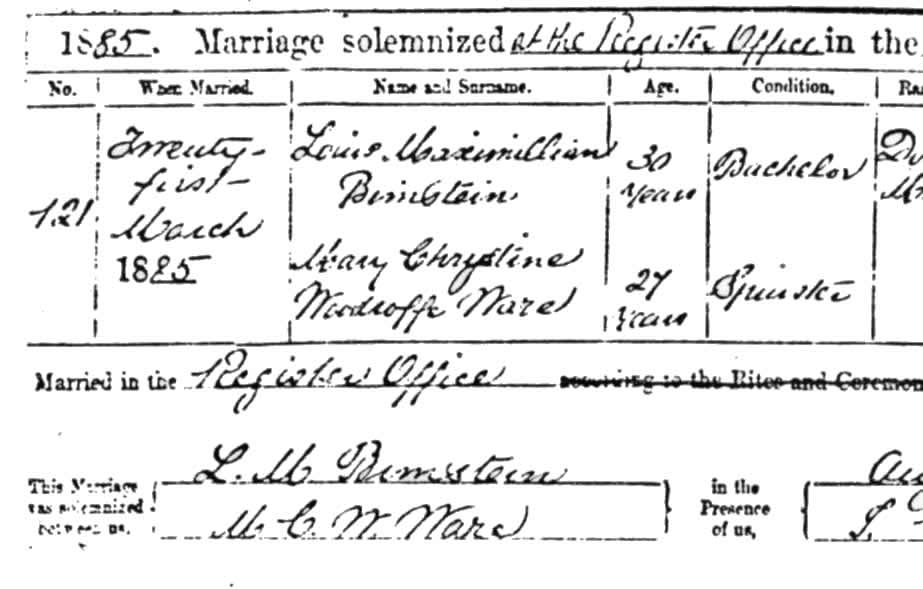 1885. Marriage solemnized at the Register Office in the
No. When Married. Name and Surname. Age. Condition. Ra
121 Twenty-first March 1885 Louis Maximillian Bimstein 30 Years Bachelor
Mary Chrystine Woodroffe Ware 27 Years Spinster
Married in the Register Office according to the Rites and Ceremon
This Marriage was solemnized between us, L. M. Bimstein in the Presence of us,
M. C. W. Ware